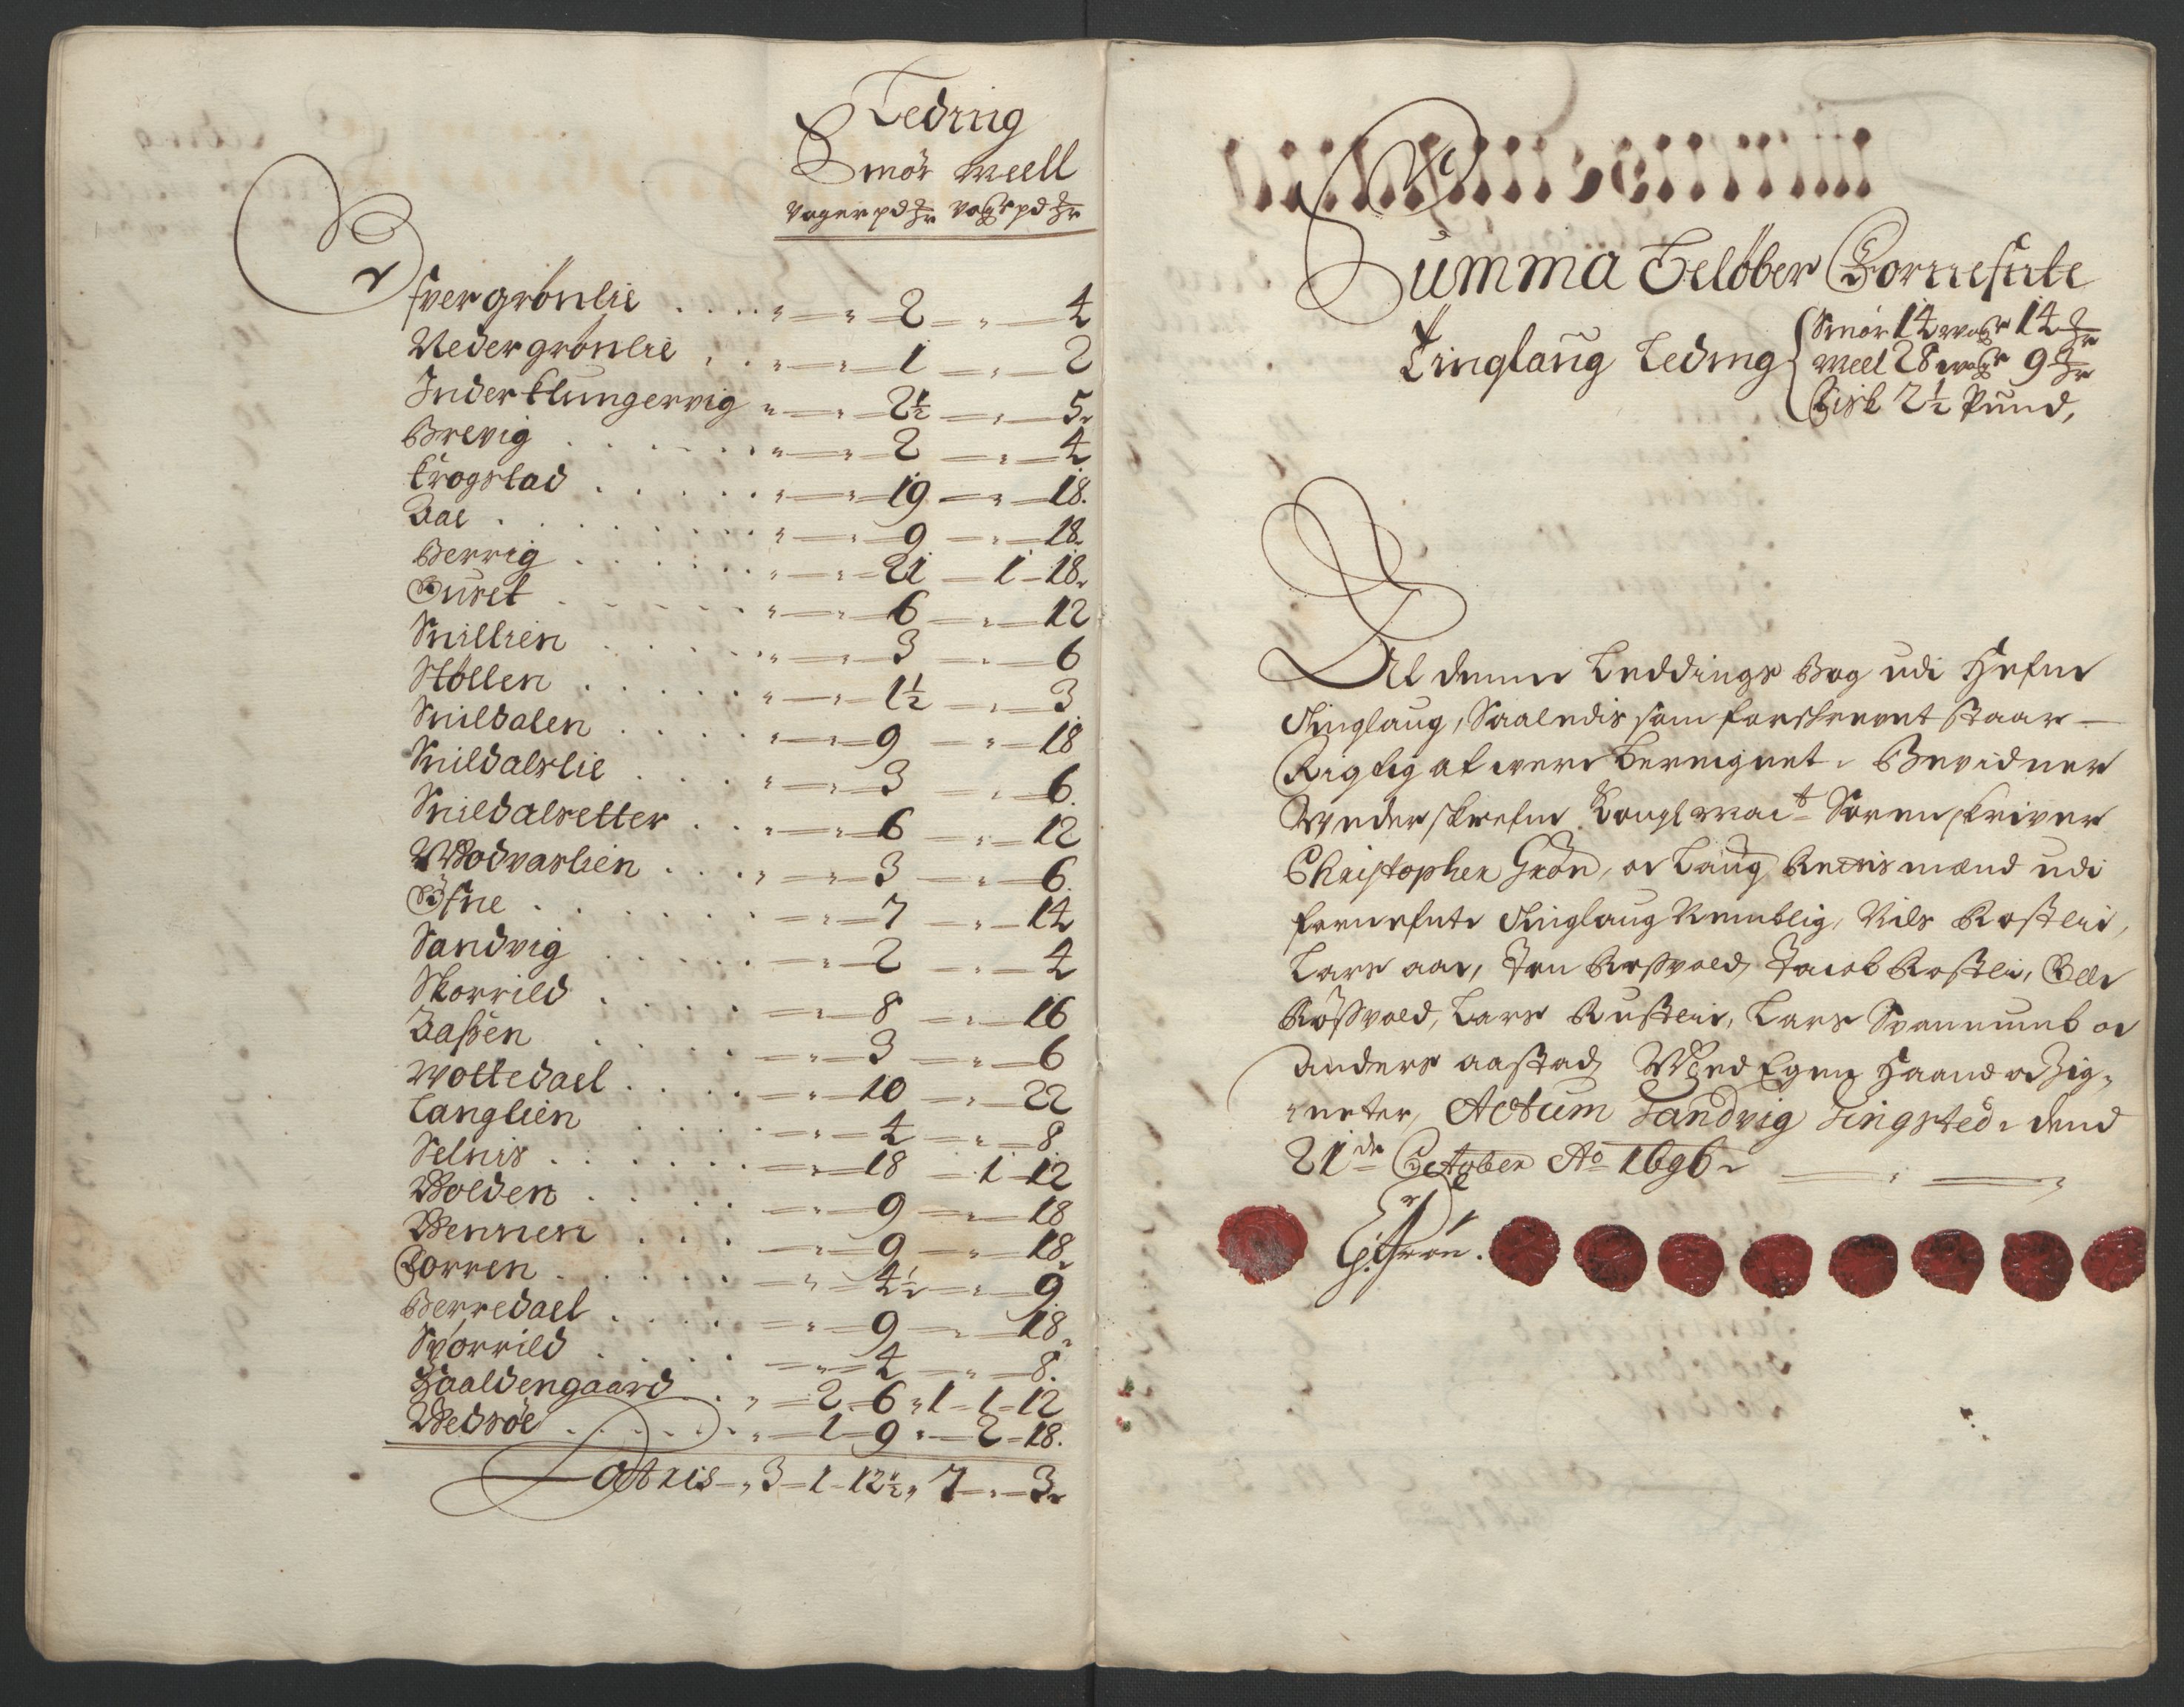 Leding
Smör Meell
Voger pd ℔r Vogr pd ℔r
Öfvergrönlie . . . . „ — „ — 2 — „ — 4
Nedergrönlie . . . „ — „ — 1 — „ — 2
Inderklungervig „ — „ — 2½ — „ — 5
Brevig . . . . . „ — „ — 2 — „ — 4
Krogstad . . . . . „ — „ — 19 — „ — 18.
Aae . . . . . . „ — „ — 9 — „ — 18.
Berrig . . . . . „ — „ — 21 — 1 — 18.
Buset . . . . . „ — „ — 6 — „ — 12
Snillien . . . . . „ — „ — 3 — „ — 6
Støllen . . . . . „ — „ — 1½ — „ — 3
Snildalen . . . . „ — „ — 9 — „ — 18
Snildalslie . . . . „ — „ — 3 — „ — 6.
Snildalsetter . . „ — „ — 6 — „ — 12
Modvaslien . . . . „ — „ — 3 — „ — 6.
Öfne . . . . . . — „ — 7 — „ — 14
Sandvig . . . . . — „ — 2 — „ — 4
Skorrild . . . . . — „ — 8 — „ — 16
Aassen . . . . . — „ — 3 — „ — 6
Wottedael . . . . — „ — 10 — „ — 22
Langlien . . . . — „ — 4 — „ — 8.
Selnis . . . . . — „ — 18 — 1 — 12
Wolden . . . . . — „ — 9 — „ — 18
Wennen . . . . — „ — 9 — „ — 18.
Korren . . . . . — „ — 4½ — „ — 9
Berredael . . . . — „ — 9 — „ — 18.
Svorrild . . . . — „ — 4 — „ — 8.
Haaldengaard . . „ — 2 — 6 „ 1 — 1 — 12
Wedsöe . . . . . „ — 1 — 9 „ — 2 — 18.
Lateris — „ 3 — 1 — 12½ „ 7 — „ — 3.
Summa Beløber Fornefnte
Tinglaug Leding
Smør 14 wogr 14 ℔r
Meel 28 wogr 9 ℔r
Fisk 2½ Pund,
At denne Leddings Bog udi Hefne
Tinglaug, Saaledis som forskrevet staar —
Rigtig at were Beregnet, Bevidner
Wnderskrefne Kongl Mait Sorenskriver
Christopher Grön, oc Laug Rettis mænd udi
fornefnte Tinglaug Nemblig, Nils Rostlie,
Lars aae, Jon Rossvold, Jacob Rostli, Olle
Rössvold, Lars Rustlie, Lars Svannumb oc
Anders aastad, Med Egen Haand oc Zig-
neter, Actum Sandvig Tingsted, dend
21de October Ao 1696.
C: Grön.